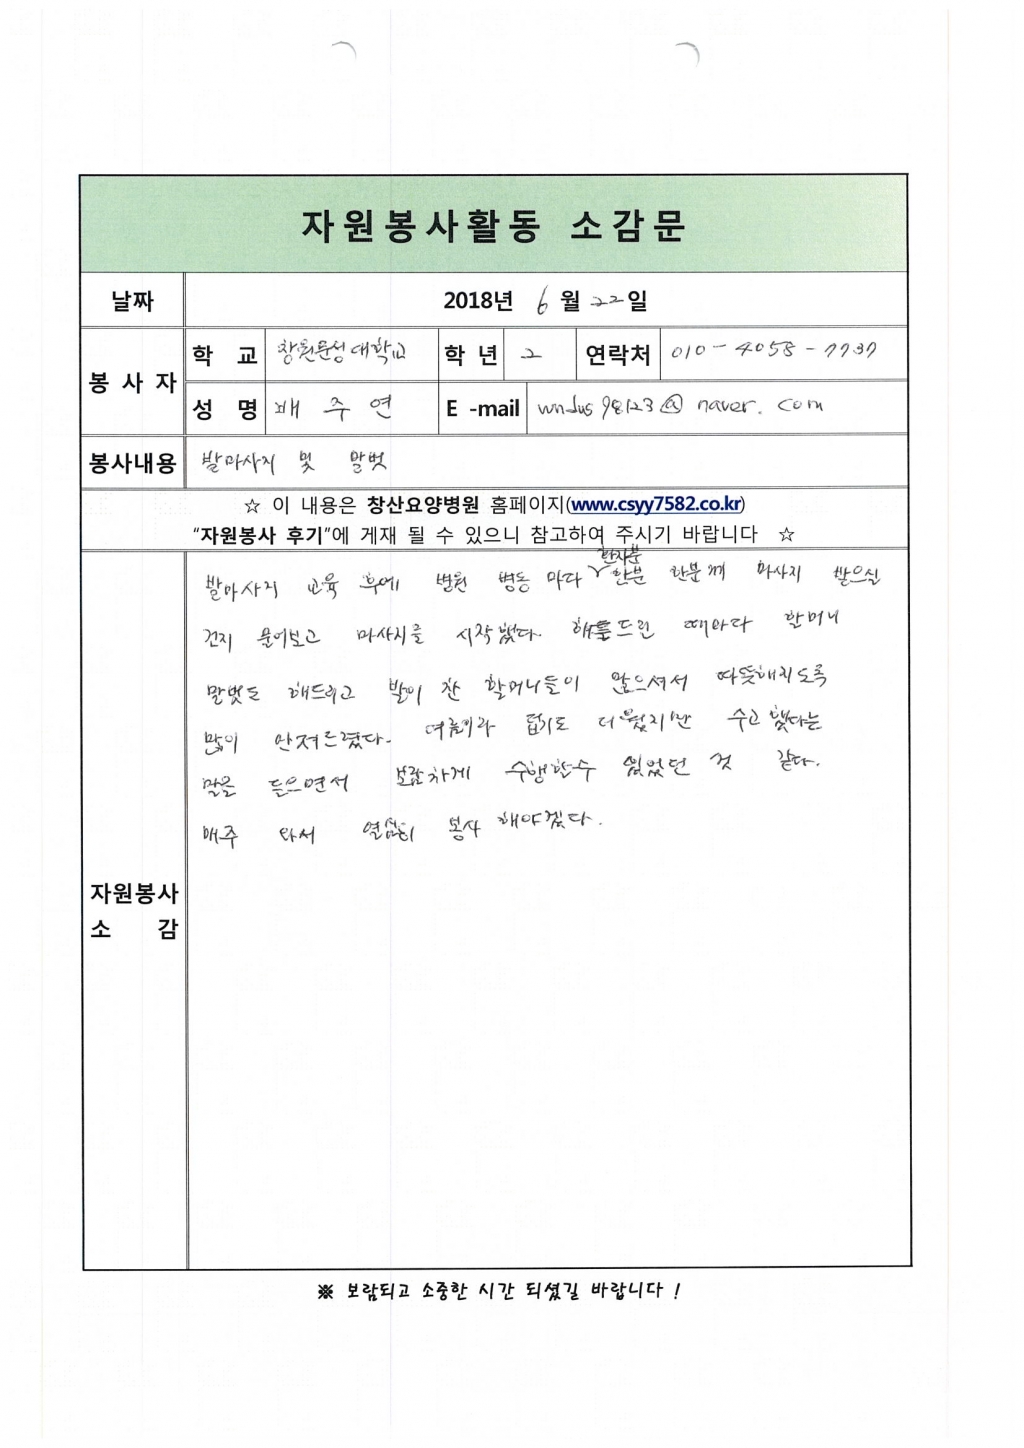 자원봉사활동 소감문
날짜 2018년 6월 22일
봉사자 학교 창원문성대학교 학년 2 연락처 010-4058-7737
성명 배주연 E -mail wndus98123@naver.com
봉사내용 발마사지 및 말벗
☆ 이 내용은 창산요양병원 홈페이지(www.csyy7582.co.kr)
"자원봉사 후기"에 게재 될 수 있으니 참고하여 주시기 바랍니다 ☆
환자분
발마사지 교육 후에 병원 병동 마다 한분 한분께 마사지 받으실
건지 물어보고 마사지를 시작했다. 해드린 때마다 할머니
말벗도 해드리고 발이 찬 할머니들이 많으셔서 따뜻해지도록
많이 만져드렸다. 여름이라 덥기도 더웠지만 수고했다는
말을 들으면서 보람차게 수행할수 있었던 것 같다.
매주 와서 열심히 봉사 해야겠다.
자원봉사
소감
※ 보람되고 소중한 시간 되셨길 바랍니다 !